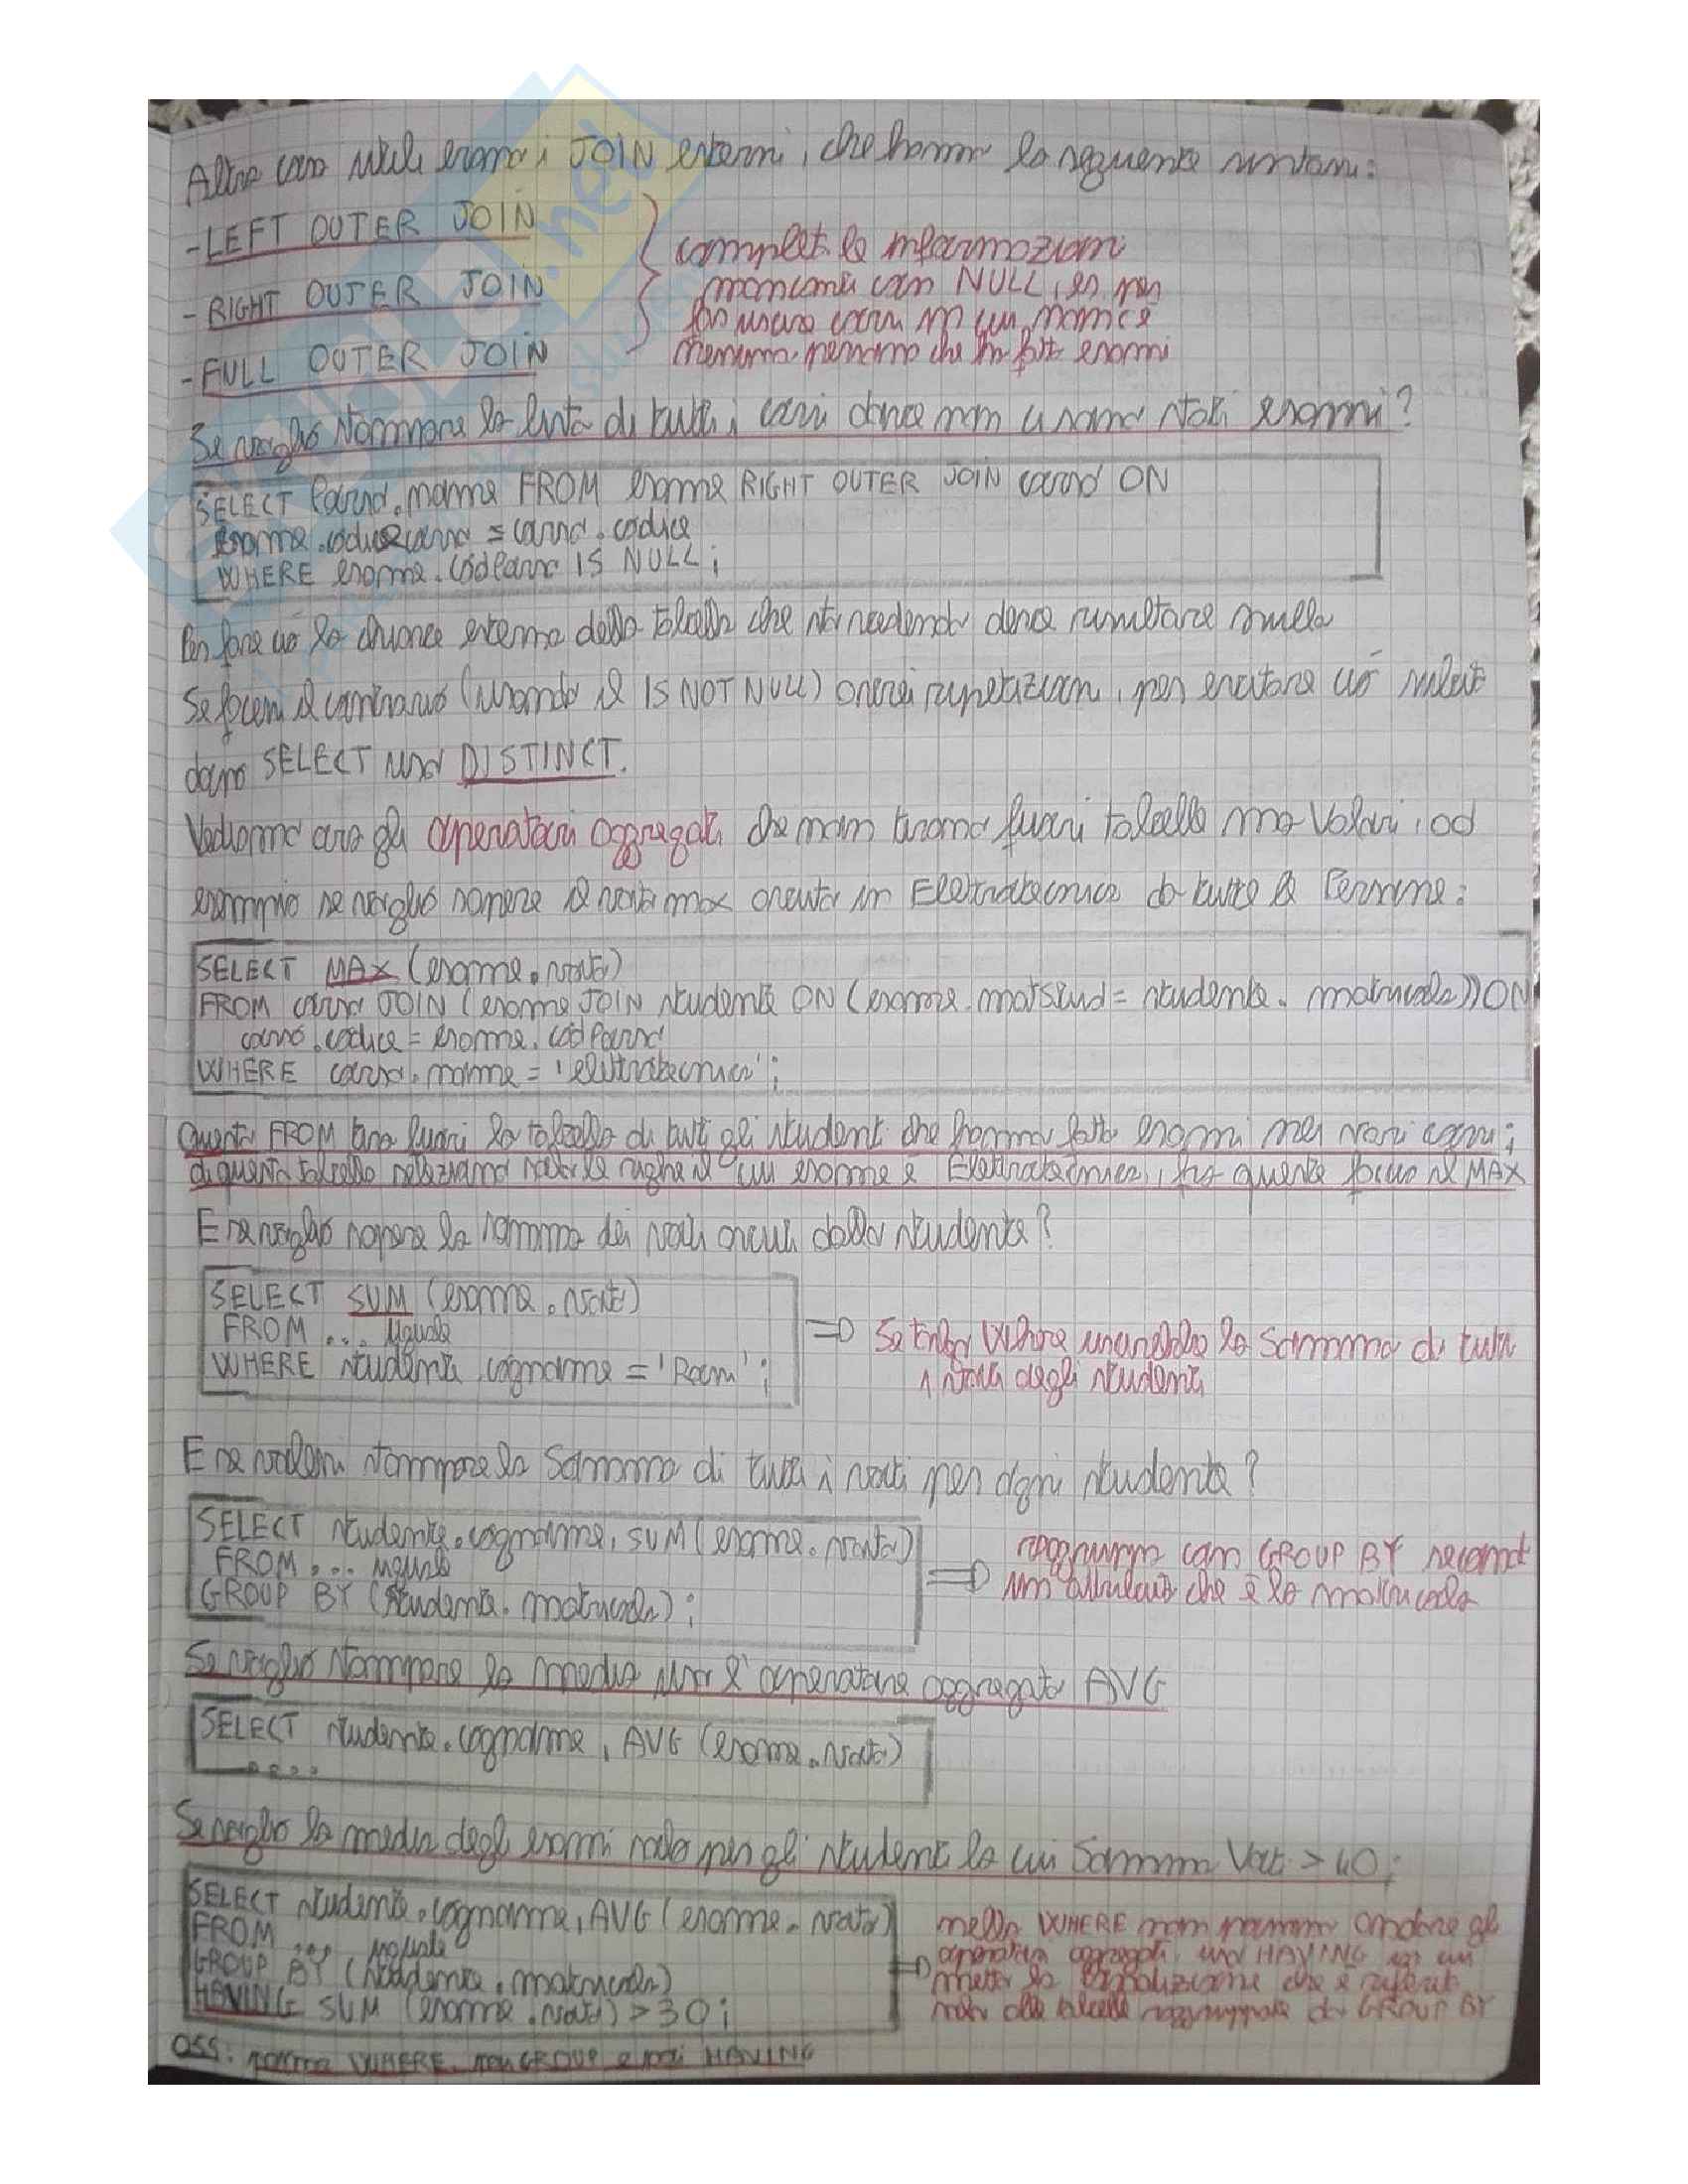 Altra cosa utile erano i JOIN esterni, che hanno la seguente sintassi:
- LEFT OUTER JOIN
- RIGHT OUTER JOIN
- FULL OUTER JOIN
completa le informazioni
mancanti con NULL, es per
far uscire corsi in cui non c'è
nessuna persona che ha fatto esami
Se voglio stampare la lista di tutti i corsi dove non ci sono stati esami?
SELECT Corso.nome FROM esame RIGHT OUTER JOIN corso ON
esame.codicecorso = corso.codice
WHERE esame.codCorso IS NULL;
Per fare ciò la chiave esterna della tabella che sto vedendo deve risultare nulla
Se facessi il contrario (usando il IS NOT NULL) avrei ripetizioni, per evitare ciò subito
dopo SELECT uso DISTINCT.
Vediamo ora gli operatori aggregati che non tirano fuori tabelle ma Valori, ad
esempio se voglio sapere il voto max avuto in Elettrotecnica da tutte le Persone:
SELECT MAX (esame.voto)
FROM corso JOIN (esame JOIN studente ON (esame.matStud = studente.matricola)) ON
corso.codice = esame.codCorso
WHERE corso.nome = 'elettrotecnica';
Questo FROM tira fuori la tabella di tutti gli studenti che hanno fatto esami nei vari corsi;
di questa tabella seleziono solo le righe il cui esame è Elettrotecnica, fra queste faccio il MAX
E se voglio sapere la somma dei voti avuti dallo studente?
SELECT SUM (esame.voto)
FROM ... uguale
WHERE studente.cognome = 'Rossi';
⇒ Se tolgo Where uscirebbe la Somma di tutti
i voti degli studenti
E se volessi stampare la Somma di tutti i voti per ogni studente?
SELECT studente.cognome, SUM (esame.voto)
FROM ... uguale
GROUP BY (studente.matricola);
⇒ raggruppo con GROUP BY secondo
un attributo che è la matricola
Se voglio stampare la media uso l'operatore aggregato AVG
SELECT studente.cognome, AVG (esame.voto)
....
Se voglio la media degli esami solo per gli studenti la cui Somma Voti > 40;
SELECT studente.cognome, AVG (esame.voto)
FROM ... uguale
GROUP BY (studente.matricola)
HAVING SUM (esame.voto) > 30;
⇒ nella WHERE non possono andare gli
operatori aggregati, uso HAVING in cui
metto la condizione che è riferita
solo alle tabelle raggruppate da GROUP BY
OSS: prima WHERE, poi GROUP e poi HAVING